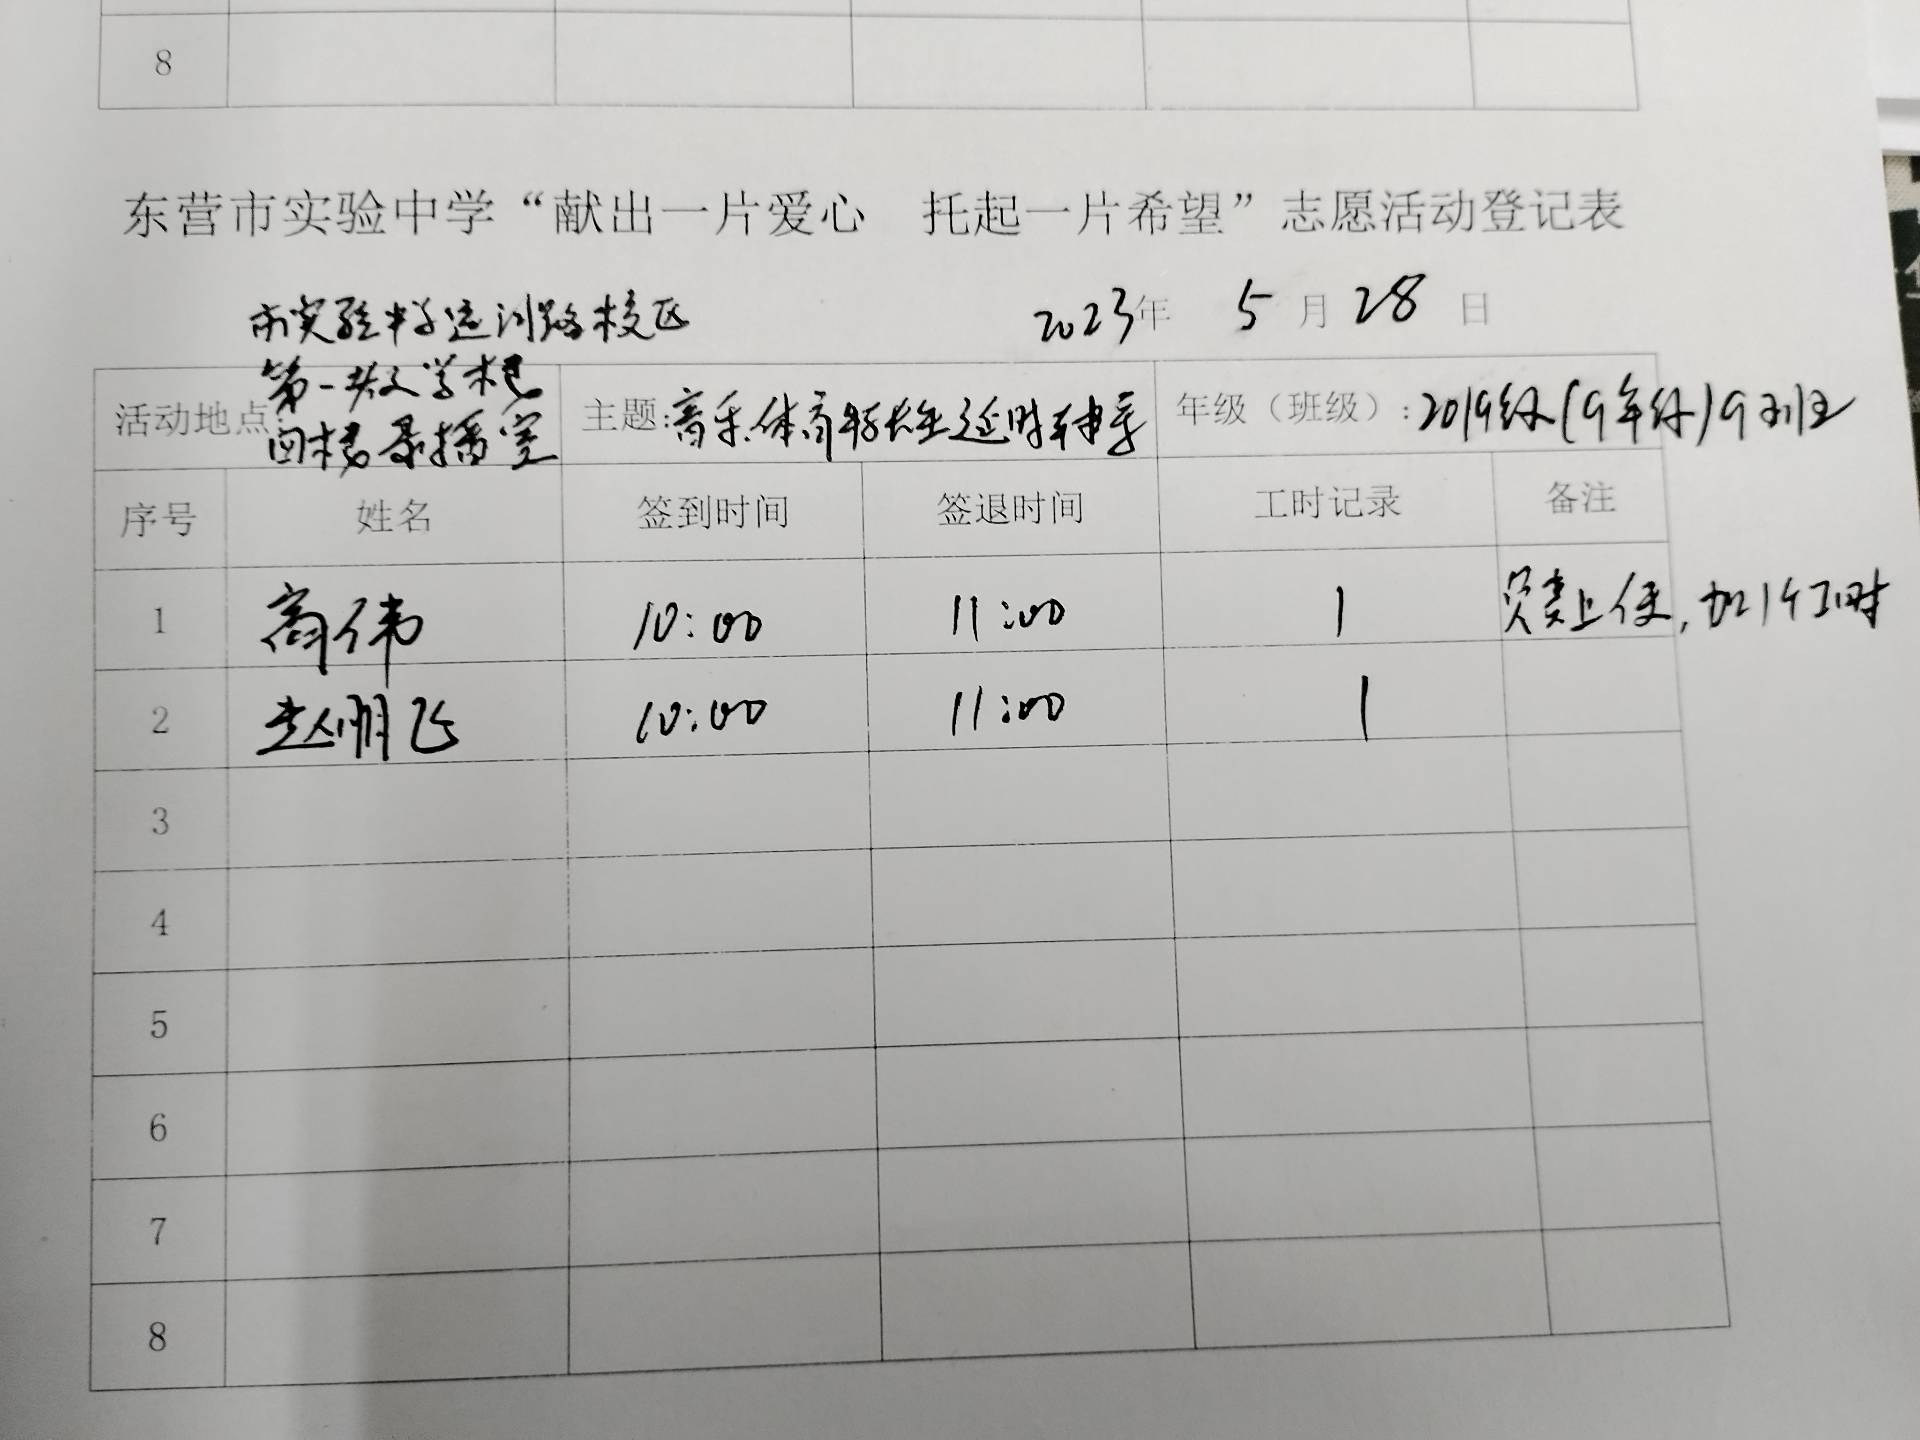 8
东营市实验中学“献出一片爱心 托起一片希望”志愿活动登记表
市实验中学运河路校区
2023年 5 月 28 日
第一教学楼
活动地点: 四楼录播室 主题:音乐、体育特长生延时辅导 年级（班级）:2019级(9年级)9班
序号 姓名 签到时间 签退时间 工时记录 备注
1 高伟 10:00 11:00 1 负责上传,加1个工时
2 赵明飞 10:00 11:00 1
3
4
5
6
7
8